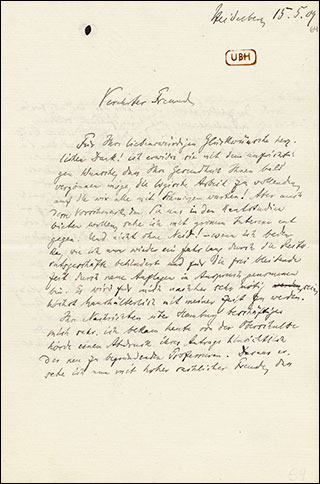 Heidelberg 15.5.09
UBH
Verehrter Freund,
Für Ihre liebenswürdigen Glückwünsche herz-
lichen Dank! ich erwidre sie mit dem aufrichti-
gen Wunsche, dass Ihre Gesundheit Ihnen bald
vergönnen möge die logische Arbeit zu vollenden
auf die wir alle mit Aber auch
dem den Sie uns in den Kantstudien
bieten wollen, sehe ich mit grossem Interesse ent
gegen. Und nicht ohne Neid! – wenn ich beden
ke, wie ich nun wieder ein Jahr lang durch die
behindert und für die frei bleibende
Zeit durch neue Auflagen in Anspruch genommen
bin. Es wird für mich nachher sehr nötig sein,
haushälterisch mit meiner Zeit zu werden.
Ihre Nachrichten über Hamburg beschäftigen
mich sehr. ich bekam heute von der Oberschulbe
hörde einen Abdruck ihres Antrags hinsichtlich
der neu zu begründenden Professuren. Daraus er
sehe ich nun mit hoher sachlicher Freude, das